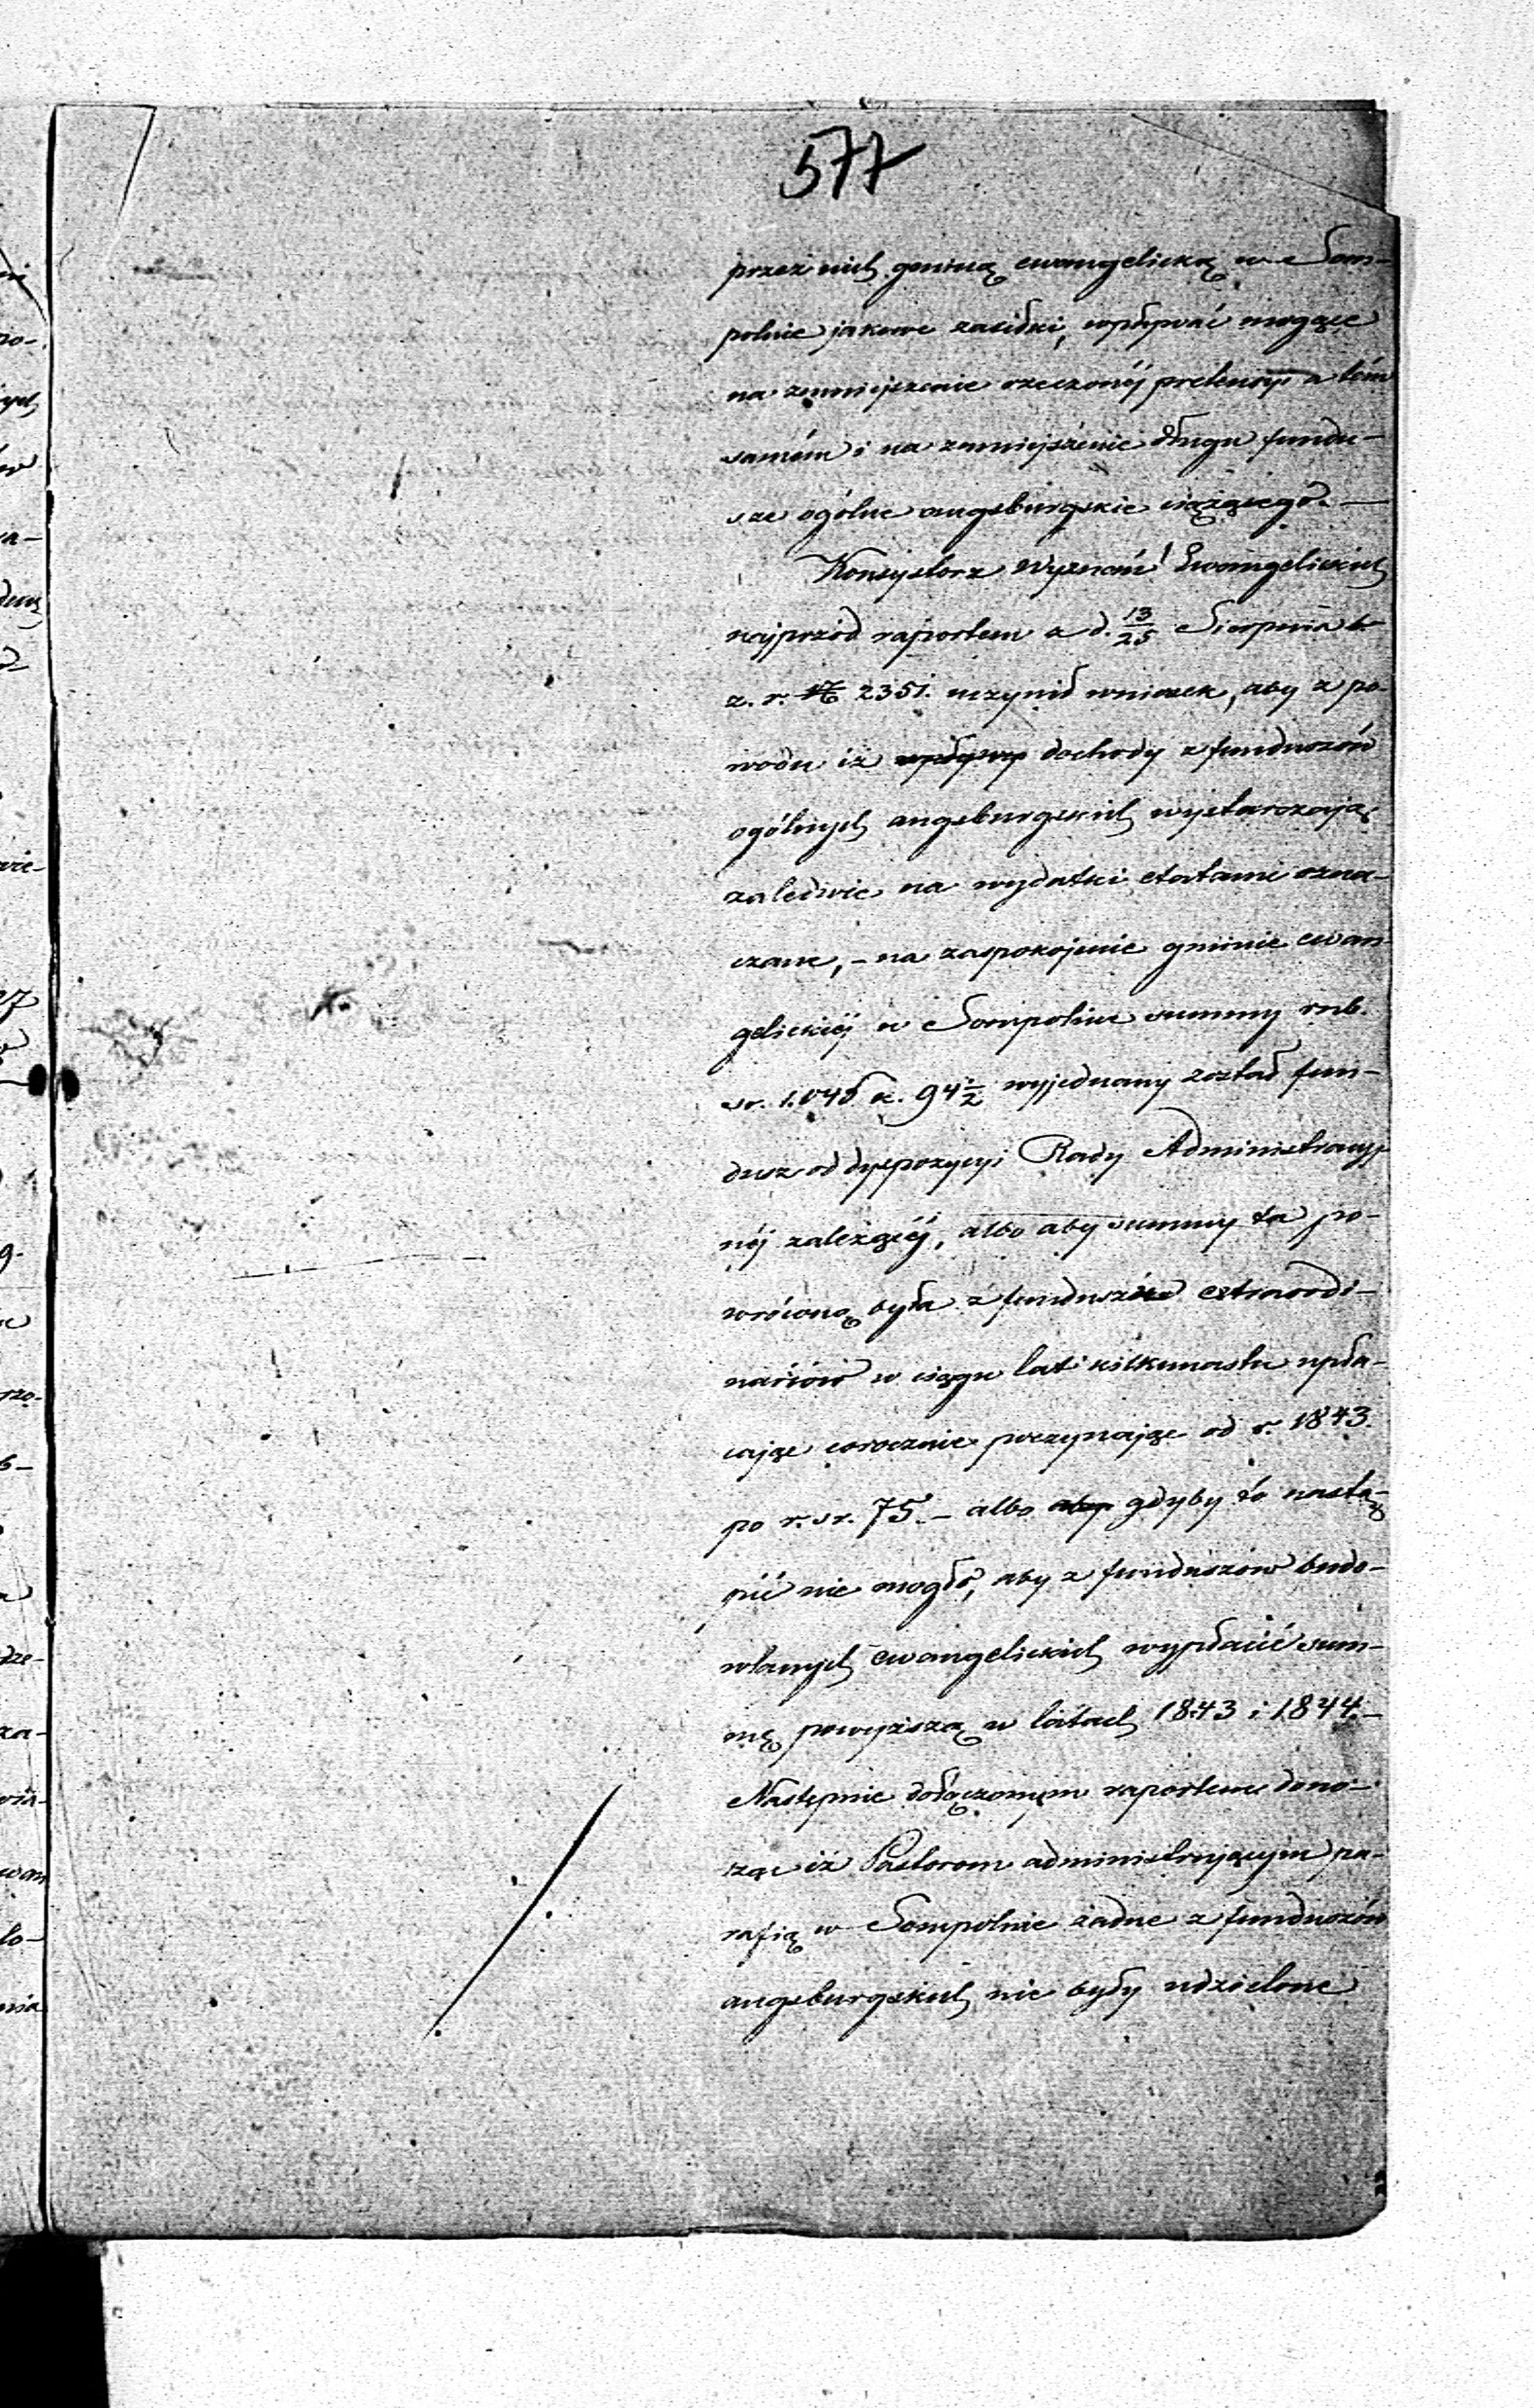 577
przez nich gminą ewangelicką w Som-
polnie jakowe zasiłki, wpływać mogące
na zmniejszenie rzeczonéj pretensyi a tém
samém i na zmniejszenie długu fundu-
sze ogólne augsburgskie ciążącego. —
Konsystorz Wyznań Ewangelickich
najprzód raportem z d. 13/25 Sierpnia b.
z. r. № 2351. uczynił wniosek, aby z po-
wodu iż wpływy dochody z funduszów
ogólnych augsburgskich wystarczają
zaledwie na wydatki etatami ozna-
czone, – na zaspokojenie gminie ewan-
gelickiéj w Sompolnie summy rub.
sr. 1.045 k. 94 1/2 wyjednany został fun-
dusz od dyspozycyi Rady Administracyj-
néj zależącéj, albo aby summy ta po-
wróconą była z funduszów extraordi-
nariów w ciągu lat kilkunastu wpła-
cając corocznie poczynając od r. 1843.
po r. sr. 75. – albo aby gdyby to nastą-
pić nie mogło, aby z funduszów budo-
wlanych ewangelickich wypłacić sum-
mę powyższą w latach 1843 i 1844. –
Następnie dołączonym raportem dono-
sząc iż Pastorom administrującym pa-
rafią w Sompolnie żadne z funduszów
augsburgskich nie były udzielone